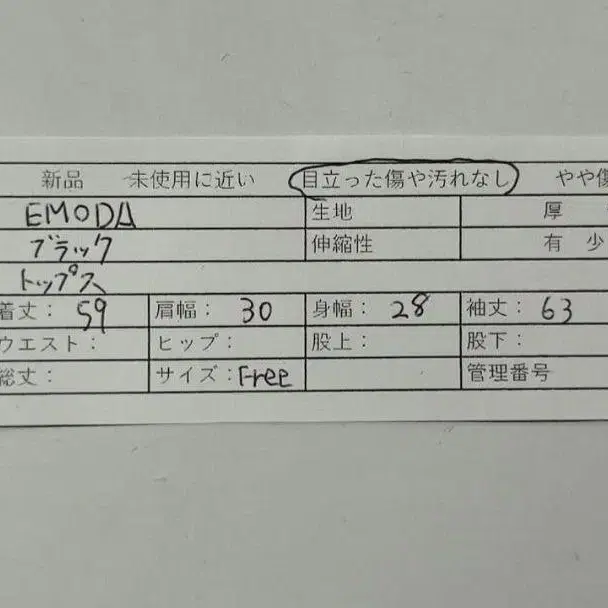 新品 未使用に近い 目立った傷や汚れなし やや傷
EMODA 生地 厚
ブラック 伸縮性 有 少
トップス
着丈： 59 肩幅： 30 身幅： 28 袖丈： 63
ウエスト： ヒップ： 股上： 股下：
総丈： サイズ：Free 管理番号